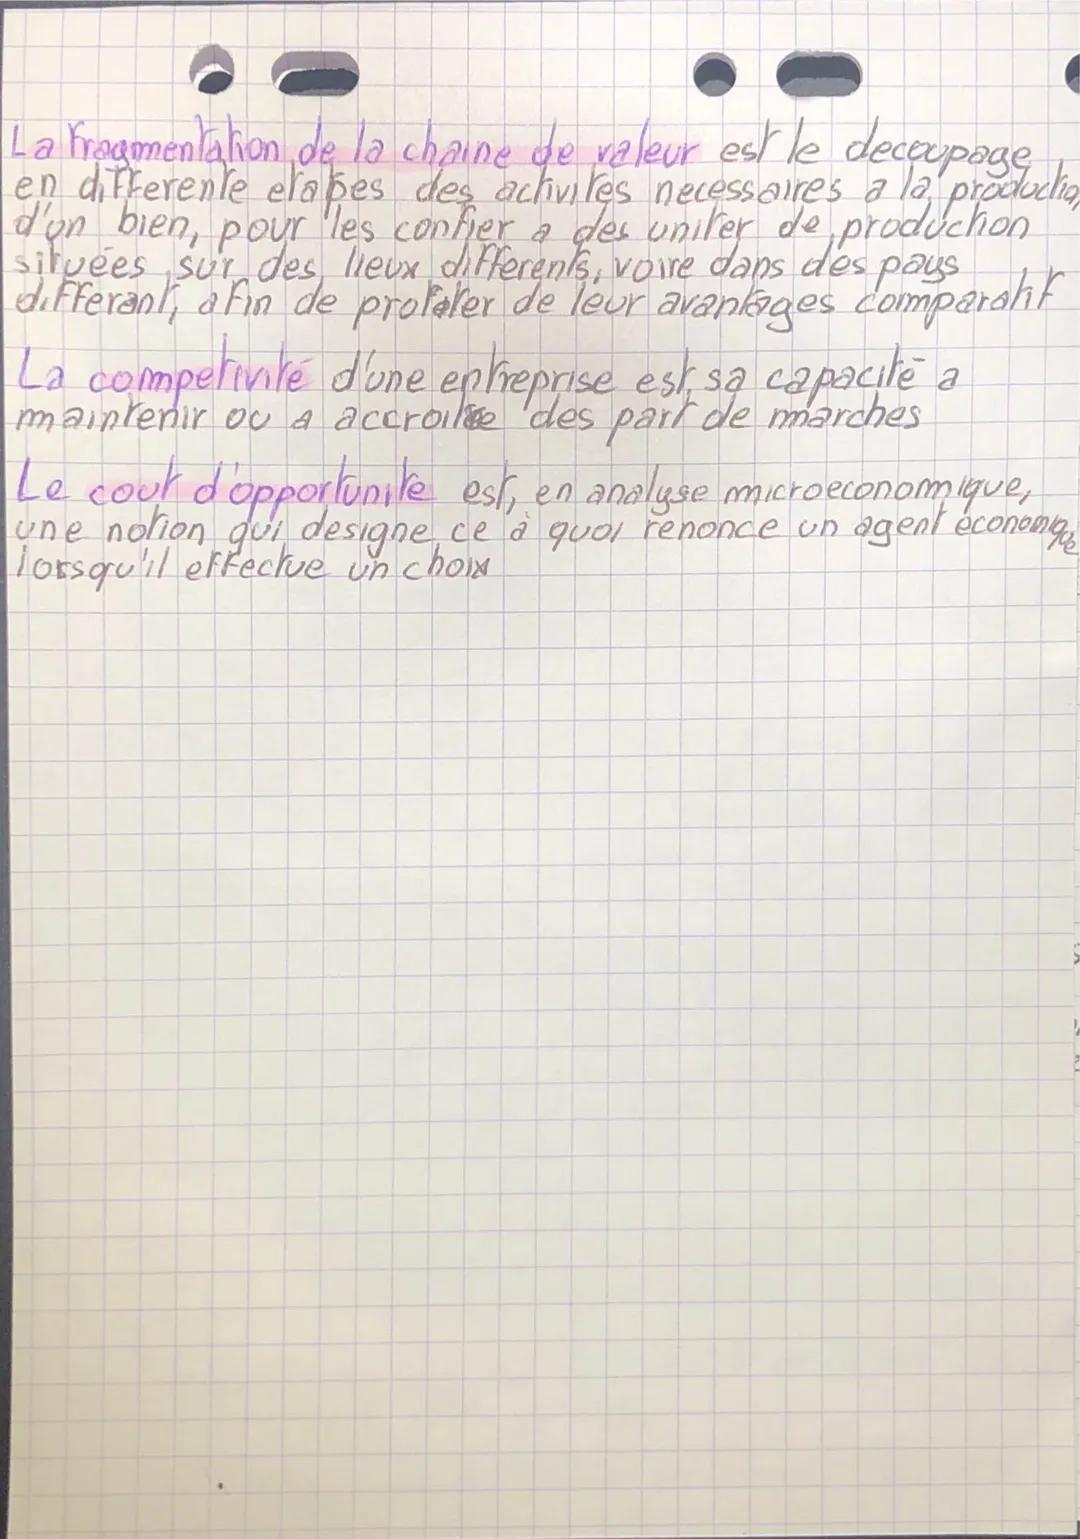 La fragmentation de la chaine de valeur est le decoupage
en differente etapes des activites necessaires a la production
d'un bien, pour les confier a des uniter de production
situées sur des lieux differents, voire dans des pays
differant, afin de profiter de leur avantages comparatif
La competivité d'une entreprise est sa capacité a
maintenir ou a accroitre des part de marches
Le cout d'opportunite est, en analyse microeconomique,
une notion qui designe ce à quoi renonce un agent économique
lorsqu'il effectue un choix